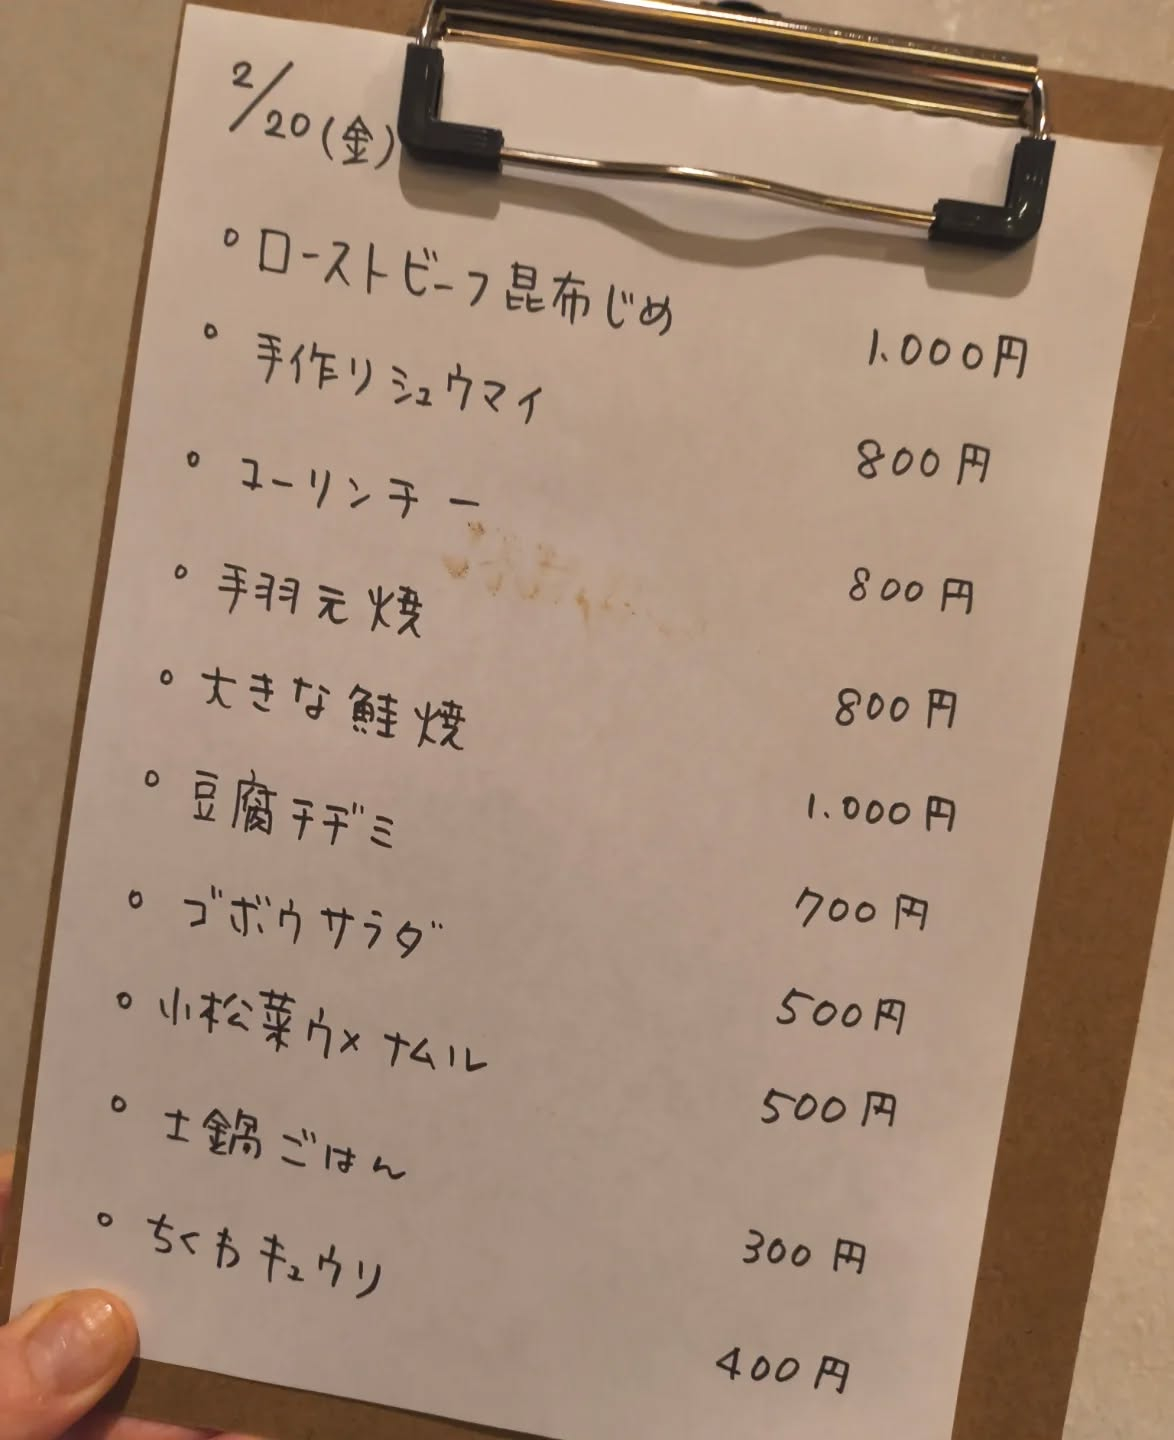 2/20(金)
。ローストビーフ昆布じめ 1.000円
。手作りシュウマイ 800円
。ユーリンチー 800円
。手羽元焼 800円
。大きな鮭焼 1.000円
。豆腐チヂミ 700円
。ゴボウサラダ 500円
。小松菜ウメナムル 500円
。土鍋ごはん 300円
。ちくわキュウリ 400円